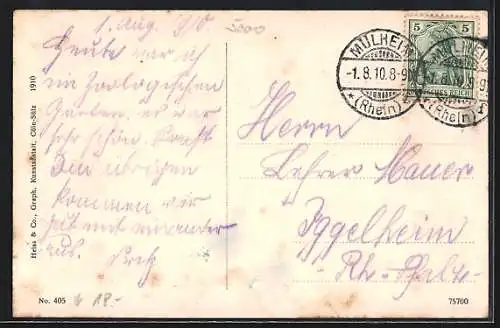 1. Aug. 1910.
5000
Heute war ich
im Zoologischen
Garten. es war
sehr schön. Sonst
Im übrigen
kommen wir
gut mit einander
aus.
Heiss & Co., Graph. Kunstanstalt, Cöln-Sülz 1910
5 5
DEUTSCHES REICH
MÜLHEIM
-1.8.10.8-9
* (Rhein) *
MÜLHEIM
(Rhein)
Herrn
Lehrer Mauer
Iggelheim
Rh.-Pfalz.
No. 405
18.-
75700